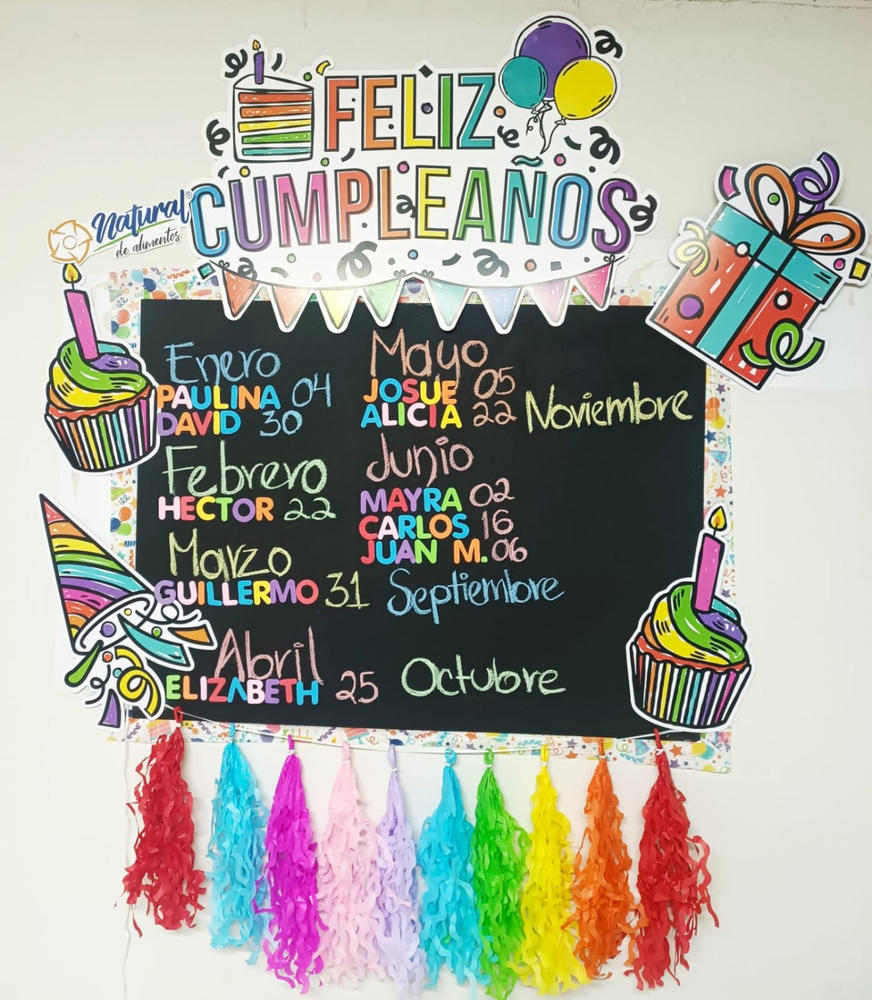 FELIZ
CUMPLEAÑOS
Natural
de alimentos
Enero
PAULINA 04
DAVID 30
Febrero
HECTOR 22
Marzo
GUILLERMO 31
Abril
ELIZABETH 25
Mayo
JOSUE 05
ALICIA 22
Junio
MAYRA 02
CARLOS 16
JUAN M. 06
Septiembre
Octubre
Noviembre